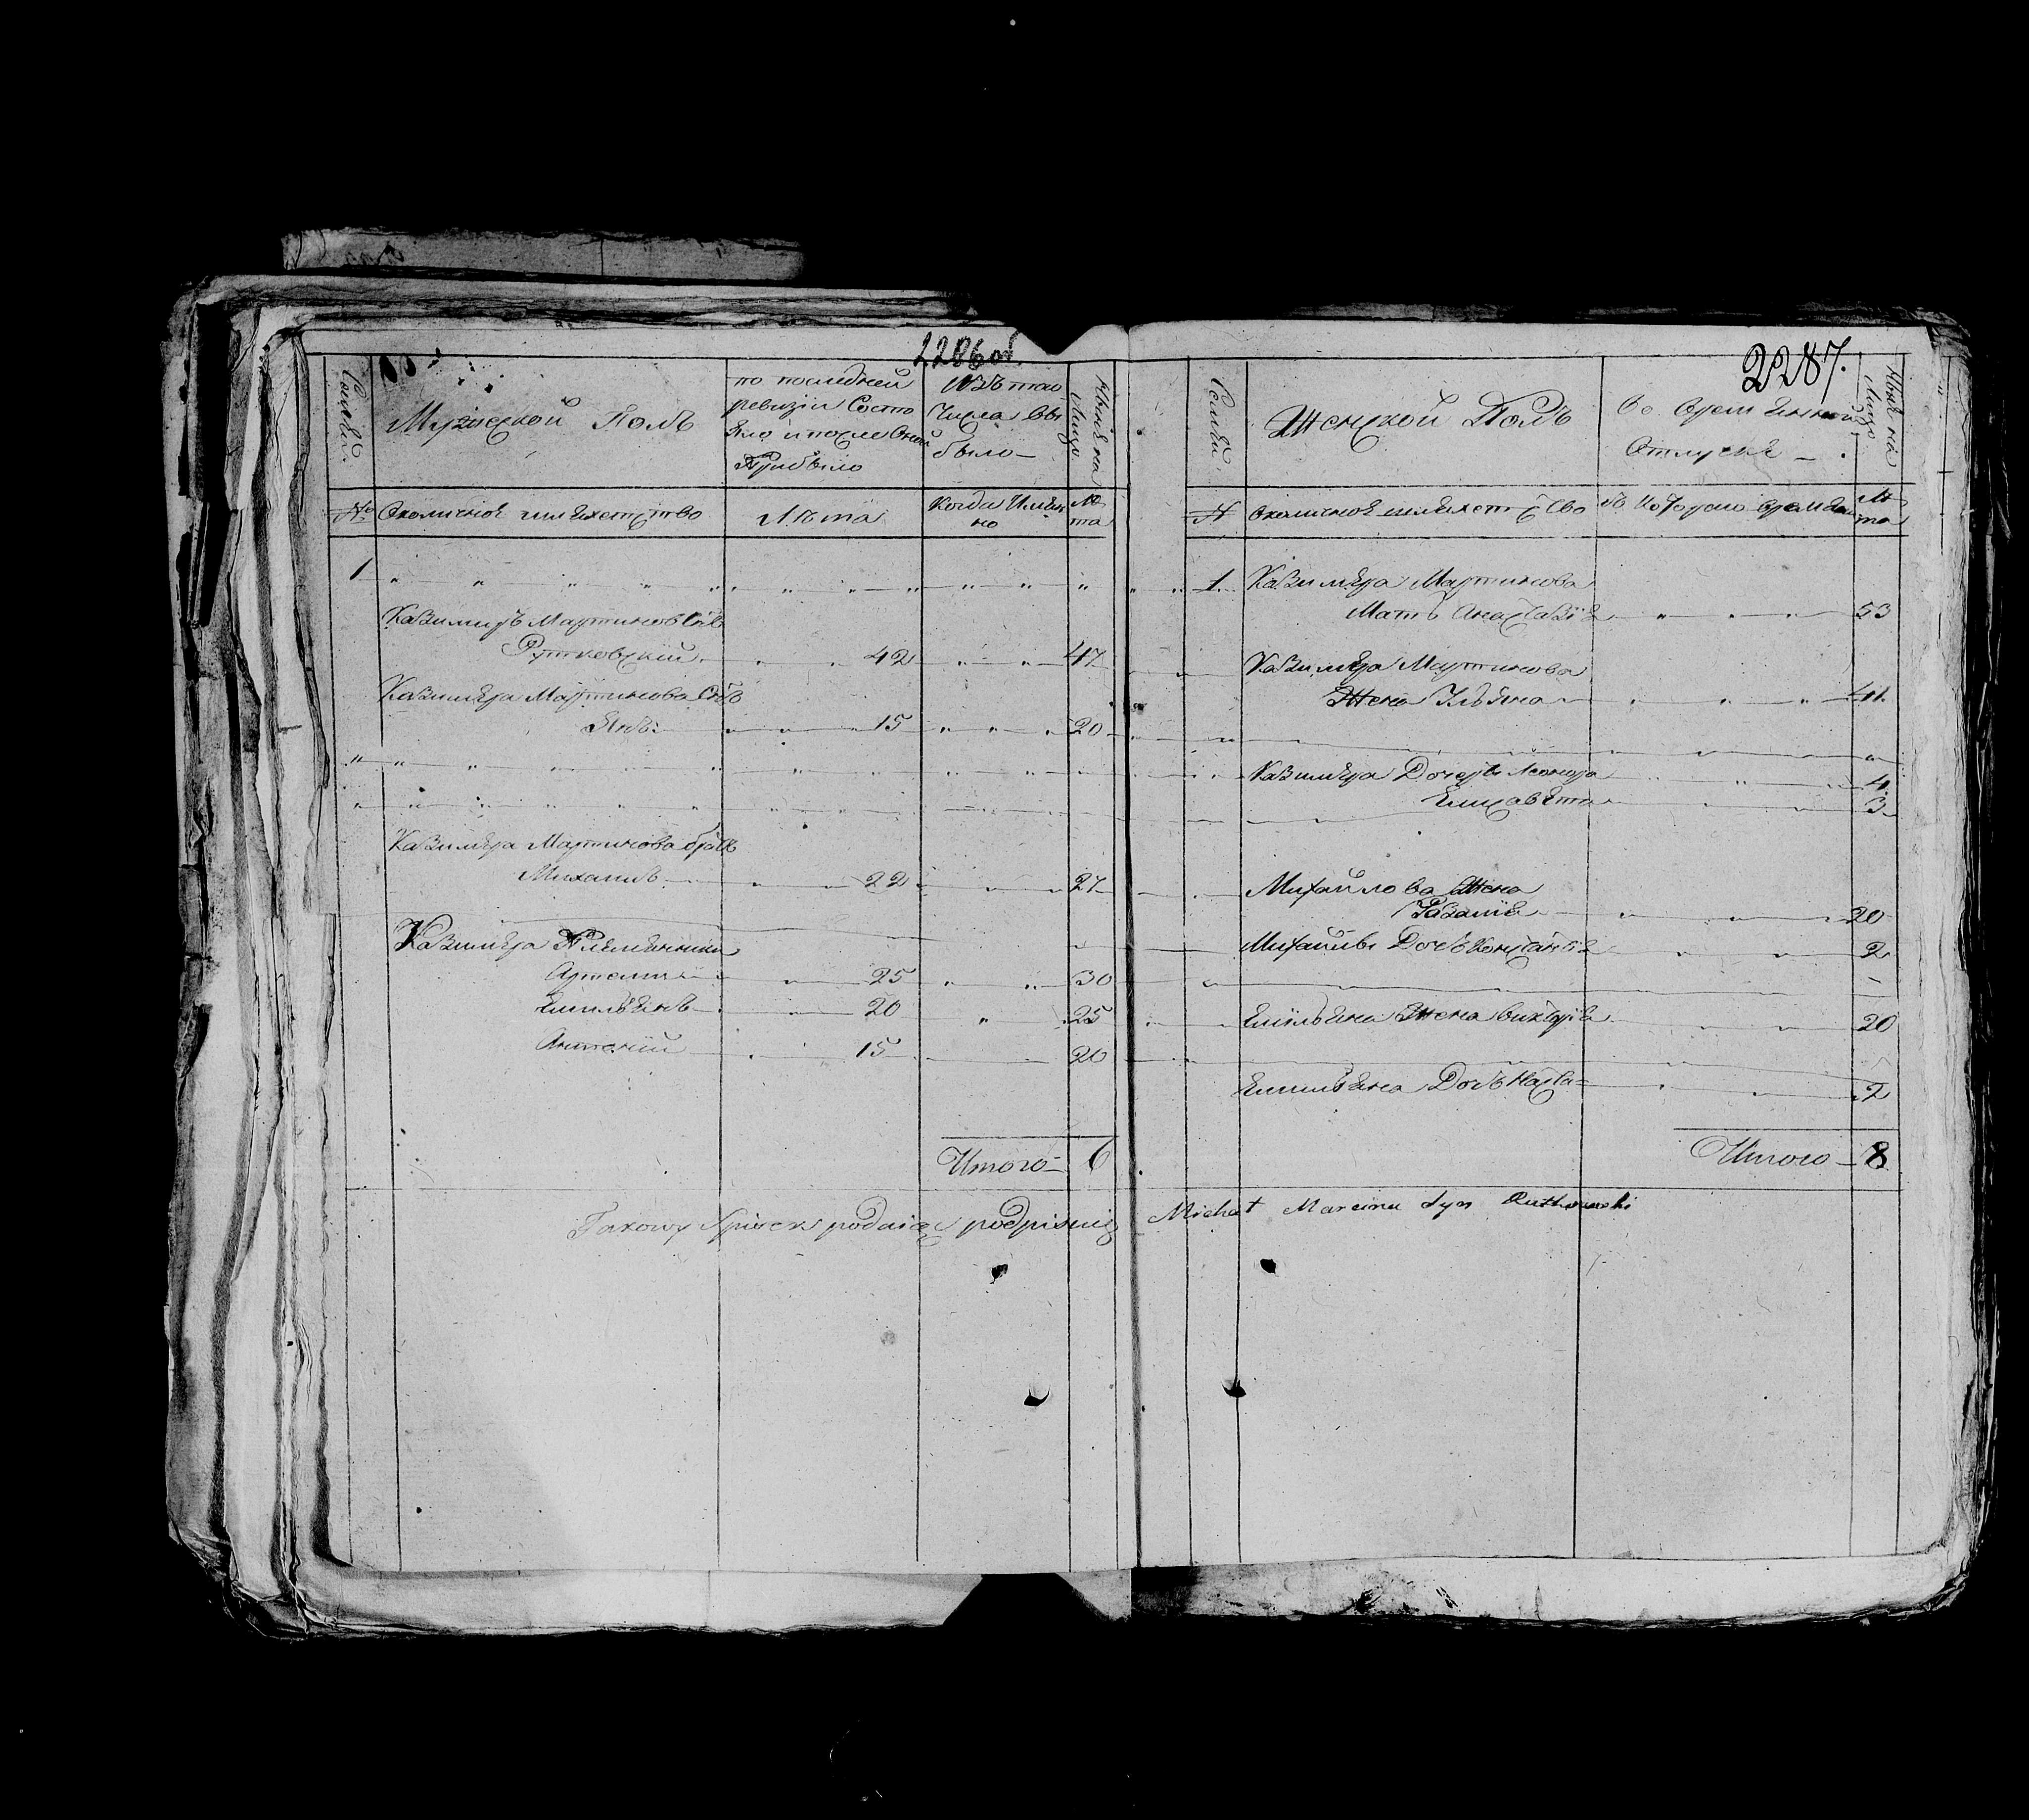 2286 об
Семьи
Мужеской Полъ
по последней
ревизіи Состо
яло и после Оной
Прибыло
Изъ того
Числа Вы
было
Ныне на
Лицо
№
Околичное шляхетство
Лѣта
Когда Имян
но
Лѣ
та
1
Казимиръ Мартиновъ Сынъ
Рутковский 42 47
Казимера Мартинова Сынъ
Янъ 15 20
Казимера Мартинова братъ
Михаилъ 22 27
Казимера Племянники
Артемий 25 30
Емильянъ 20 25
Антоній 15 20
Итого 6
2287.
Семьи
Женской Полъ
Во Временной
Отлучке
Ныне на
Лицо
№
Околичное шляхетство
съ Которого Времени
Лѣ
та
1. Казимера Мартинова
Мать Анастазія 53
Казимера Мартинова
Жена Ульяна 41
Казимера Дочерь 4
Елисавета 3
Михайлова Жена
20
Михайлы Дочь Констанція 2
Емильяна Жена Викторія 20
Емильяна Дочь Наста 2
Итого 8
Takowy Spisek podaiąc podpisuię Michał Marcina Syn Rutkowski